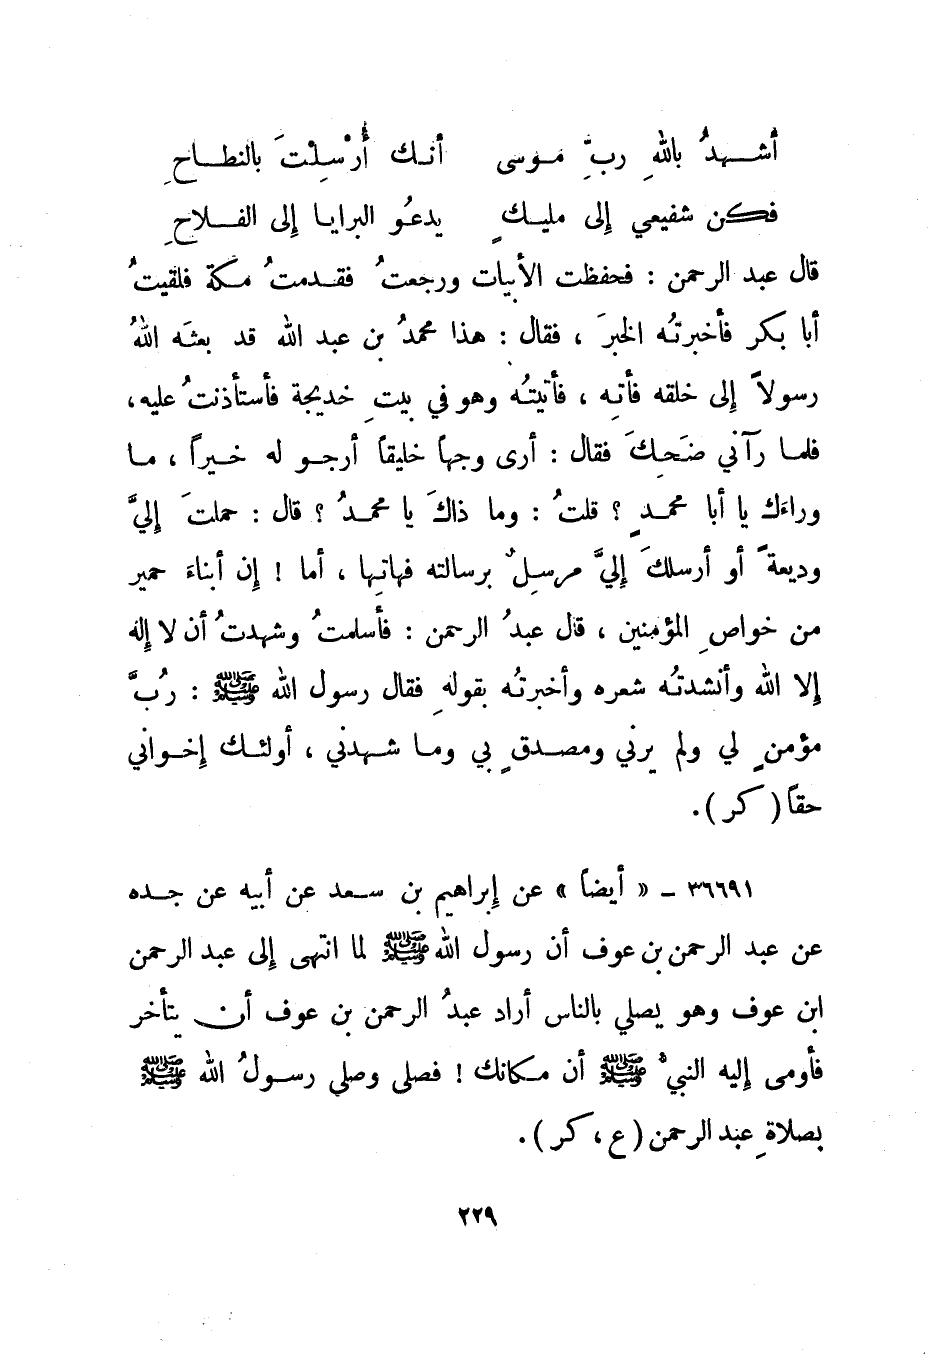 أشهدُ باللهِ ربِّ موسى أنك أُرْسِلْتَ بالنطاحِ
فكن شفيعي إلى مليكٍ يدعُو البرايا إلى الفلاحِ
قال عبد الرحمن : فحفظت الأبيات ورجعتُ فقدمتُ مكة فلقيتُ
أبا بكر فأخبرتُه الخبرَ ، فقال : هذا محمدُ بن عبد الله قد بعثَه اللهُ
رسولاً إلى خلقه فأتِه ، فأتيتُه وهو في بيتِ خديجة فأستأذنتُ عليه،
فلما رآني ضَحِكَ فقال : أرى وجهاً خليقاً أرجو له خيراً ، ما
وراءَك يا أبا محمدٍ ؟ قلتُ : وما ذاكَ يا محمدُ ؟ قال : حملتَ إليَّ
وديعةً أو أرسلكَ إليَّ مرسِلٌ برسالته فهاتِها ، أما ! إن أبناءَ حمير
من خواصِ المؤمنين ، قال عبدُ الرحمن : فأسلمتُ وشهدتُ أن لا إله
إلا الله وأنشدتُه شعره وأخبرتُه بقولهِ فقال رسول الله ﷺ : رُبَّ
مؤمنٍ لي ولم يرني ومصدقٍ بي وما شهدني ، أولئك إخواني
حقاً ( كر ) .
٣٦٦٩١ ـ « أيضاً » عن إبراهيم بن سعد عن أبيه عن جده
عن عبد الرحمن بن عوف أن رسول الله ﷺ لما انتهى إلى عبد الرحمن
ابن عوف وهو يصلي بالناس أراد عبدُ الرحمن بن عوف أن يتأخر
فأومى إليه النبيُّ ﷺ أن مكانك ! فصلى وصلي رسولُ الله ﷺ
بصلاةِ عبد الرحمن ( ع ، كر ) .
٢٢٩